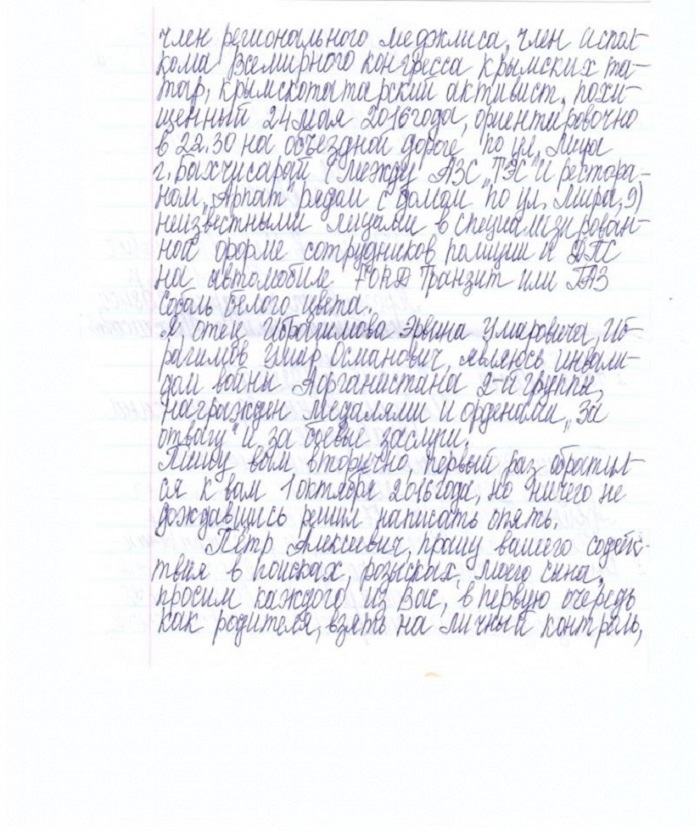 член регионального меджлиса, член испол-
кома Всемирного конгресса крымских та-
тар, крымскотатарский активист, похи-
щенный 24 мая 2016 года, ориентировочно
в 22.30 на объездной дороге по ул. Мира
г. Бахчисарай (между АЗС „ТЭС" и рестора-
ном „Арпат" рядом с домом по ул. Мира, 9)
неизвестными лицами в специализирован-
ной форме сотрудников полиции и ДПС
на автомобиле FORD Транзит или ГАЗ
Соболь белого цвета.
Я, отец Ибрагимова Эрвина Умаровича, Иб-
рагимов Умар Османович, являюсь инвали-
дом войны Афганистана 2-й группы,
награжден медалями и орденами „За
отвагу" и за боевые заслуги.
Пишу вам вторично, первый раз обратил-
ся к вам 1 октября 2016 года, но ничего не
дождавшись решил написать опять.
Пётр Алексеевич, прошу вашего содейс-
твия в поисках, розысках, моего сына,
просим каждого из Вас, в первую очередь
как родителя, взять на личный контроль,